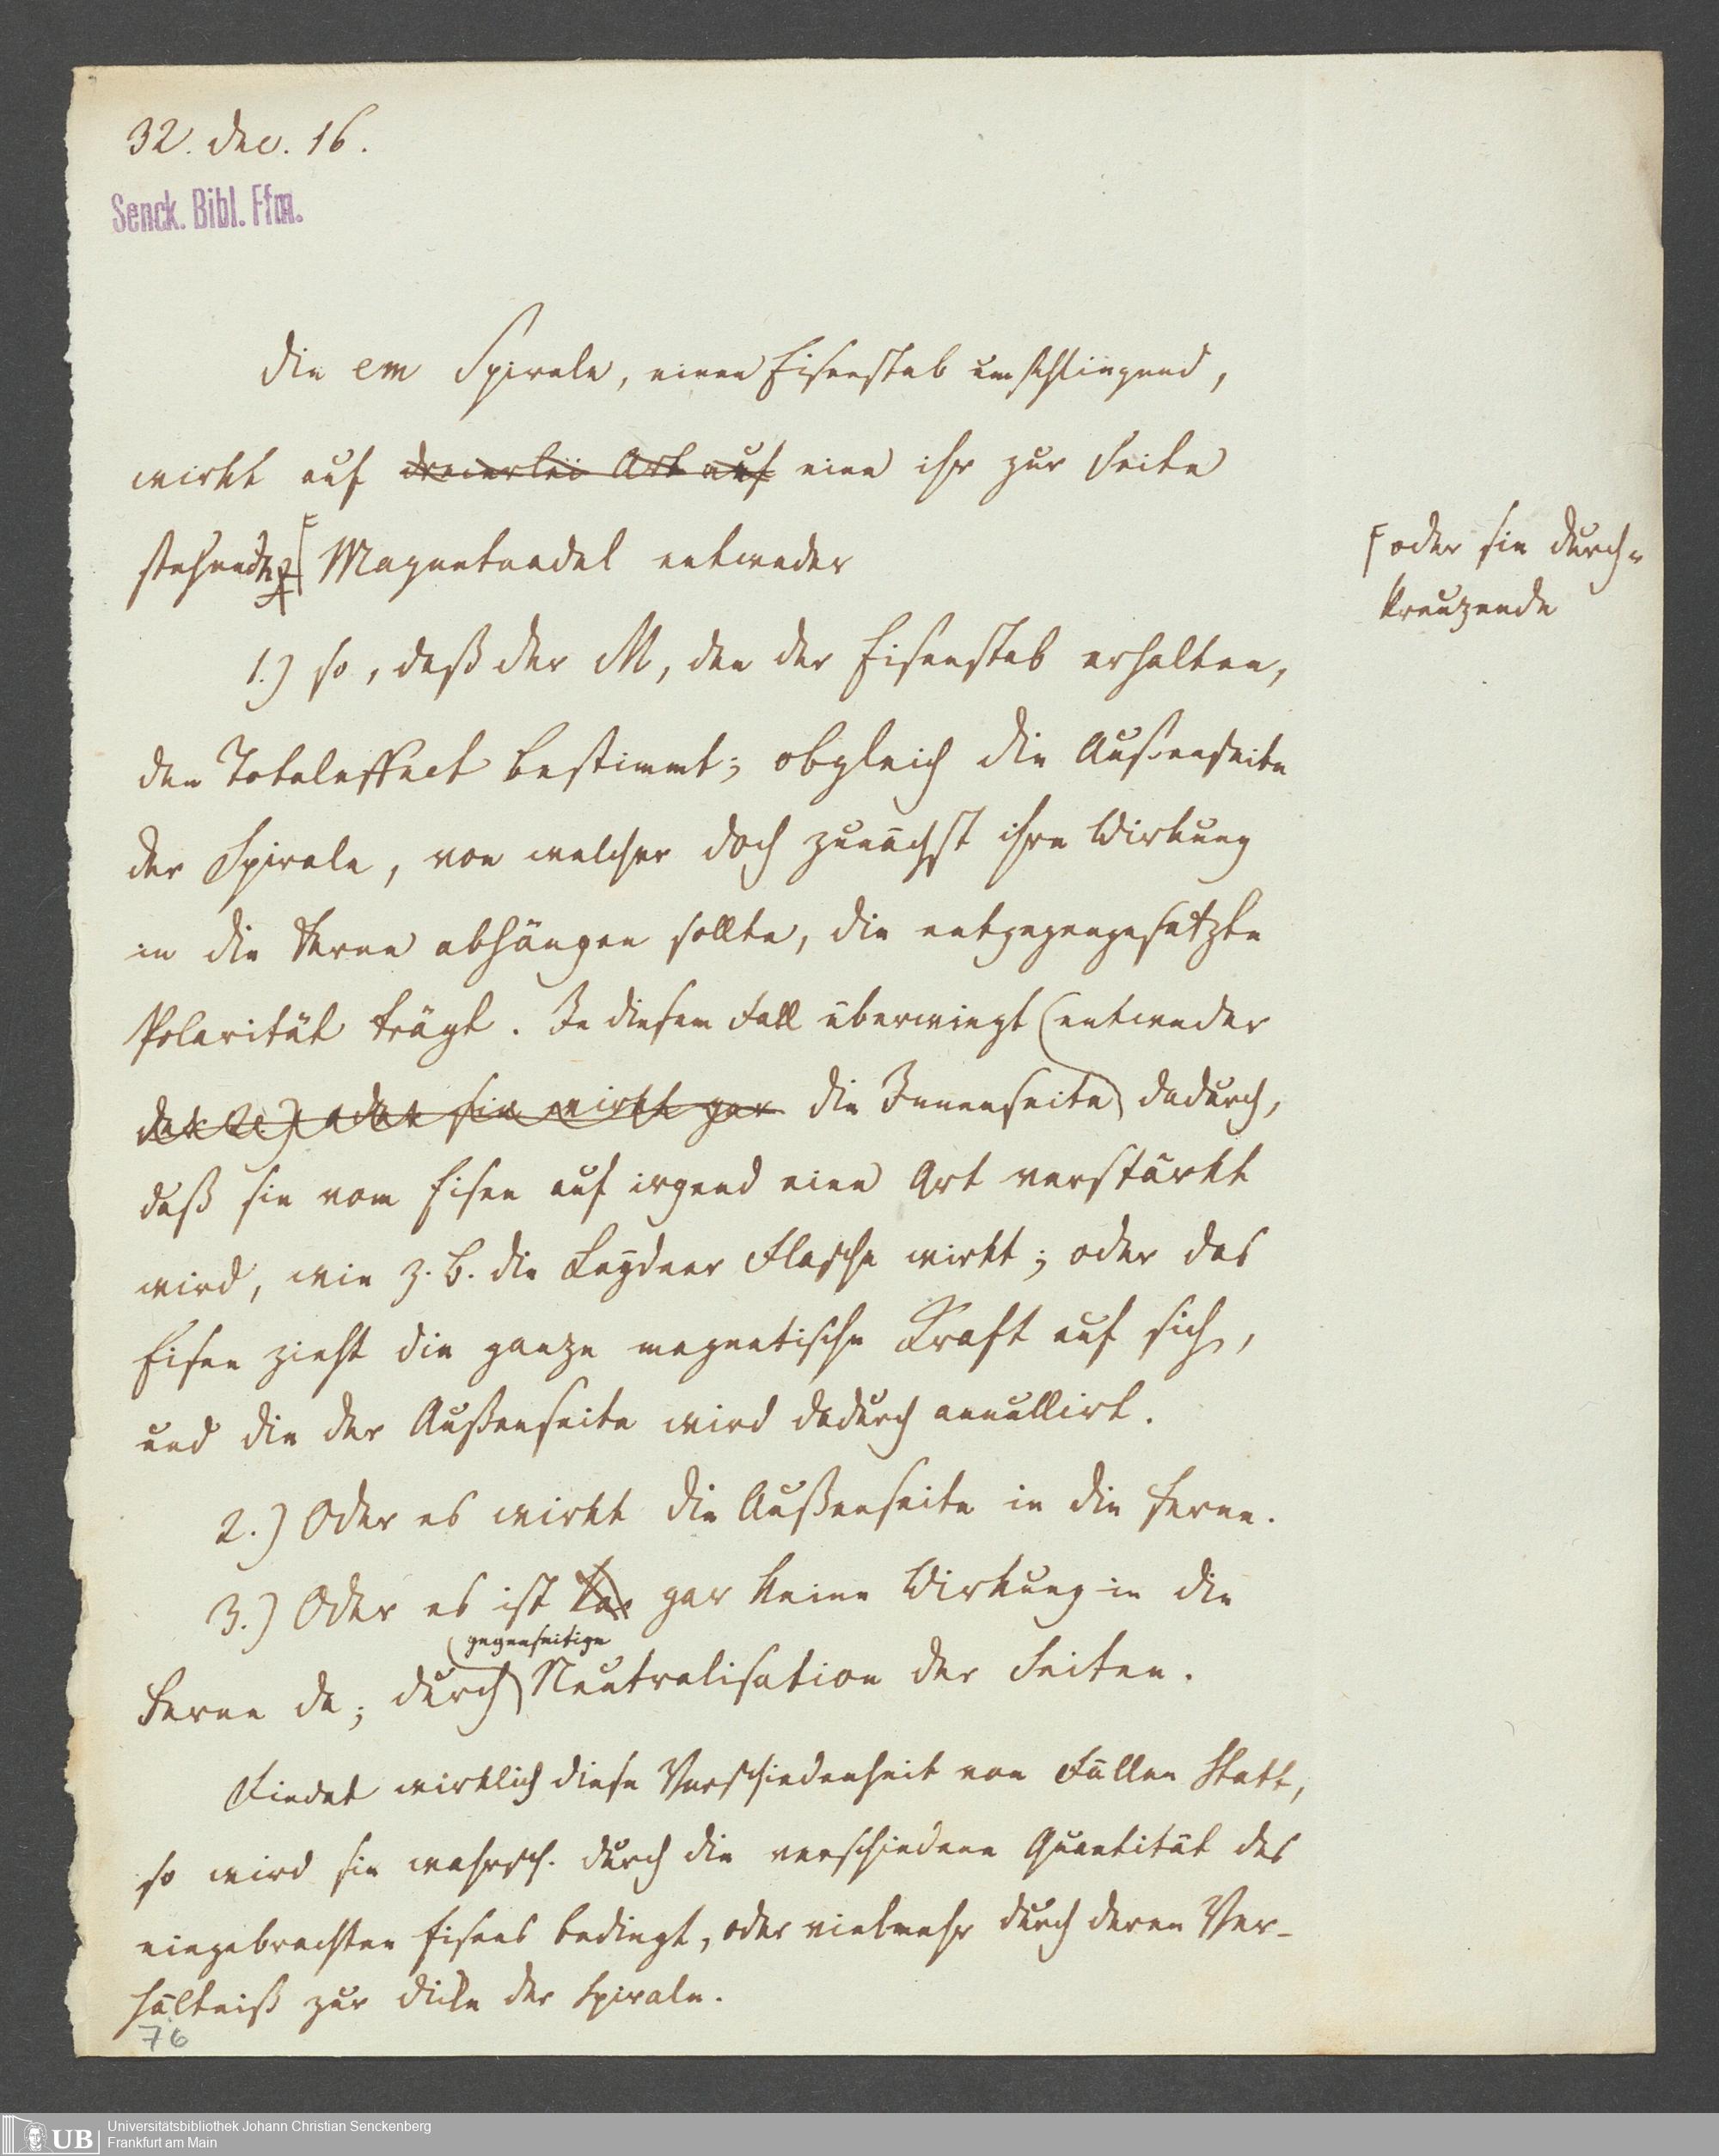 32. dec. 16.
Senck. Bibl. Ffm.
Die em Spirale, einen Eisenstab umschlingend,
wirkt auf dreierlei Art auf eine ihr zur Seite
stehende Magnetnadel entweder
oder sie durch-
kreuzende
1.) so, daß der M, den der Eisenstab erhalten,
den Totaleffect bestimmt; obgleich die Außenseite
der Spirale, von welcher doch zunächst ihre Wirkung
in die Ferne abhängen sollte, die entgegengesetzte
Polarität trägt. In diesem Fall überwiegt entweder
oder sie wirkt gar die Innenseite dadurch,
daß sie vom Eisen auf irgend eine Art verstärkt
wird, wie z. B. die Leydner Flasche wirkt; oder das
Eisen zieht die ganze magnetische Kraft auf sich,
und die der Außenseite wird dadurch annullirt.
2.) Oder es wirkt die Außenseite in die Ferne.
3.) Oder es ist gar keine Wirkung in die
gegenseitige
Ferne da; durch Neutralisation der Seiten.
Findet wirklich diese Verschiedenheit von Fällen Statt,
so wird sie wahrsch. durch die verschiedene Quantität des
eingebrachten Eisens bedingt, oder vielmehr durch deren Ver-
hältniß zur Dicke der Spirale.
76
UB Universitätsbibliothek Johann Christian Senckenberg
Frankfurt am Main